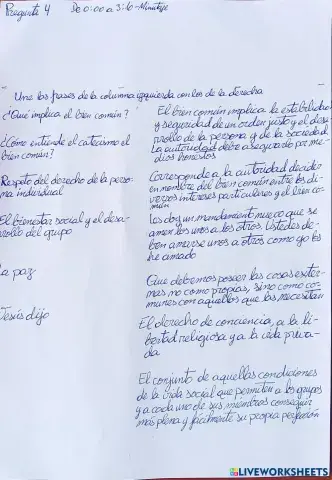 Pregunta 4 De 0:00 a 3:16-Minutaje
Une las frases de la columna izquierda con los de la derecha
¿Qué implica el bien común?
¿Cómo entiende el catecismo el
bien común?
Respeto del derecho de la perso-
na individual
El bienestar social y el desa-
rollo del grupo
La paz
Jesús dijo
El bien común implica la estabilidad
y seguridad de un orden justo y el desa
rrollo de la persona y de la sociedad.
La autoridad debe asegurado por me-
dios honestos
Corresponde a la autoridad decidir
en nombre del bien común entre los di-
versos intereses particulares y el bien co-
mún
los doy un mandamiento nuevo que se
amen los unos a los otros. Ustedes de-
ben amarse unos a otros como yo los
he amado
Que debemos poseer las cosas exter-
nas, no como propias, sino como co-
munes con aquellos que las necesitan
El derecho de conciencia, a la li-
bertad religiosa y a la vida priva-
da
El conjunto de aquellas condiciones
de la vida social que permiten a los grupos
y a cada uno de sus miembros conseguir
más plena y fácilmente su propia perfección
LIVEWORKSHEETS